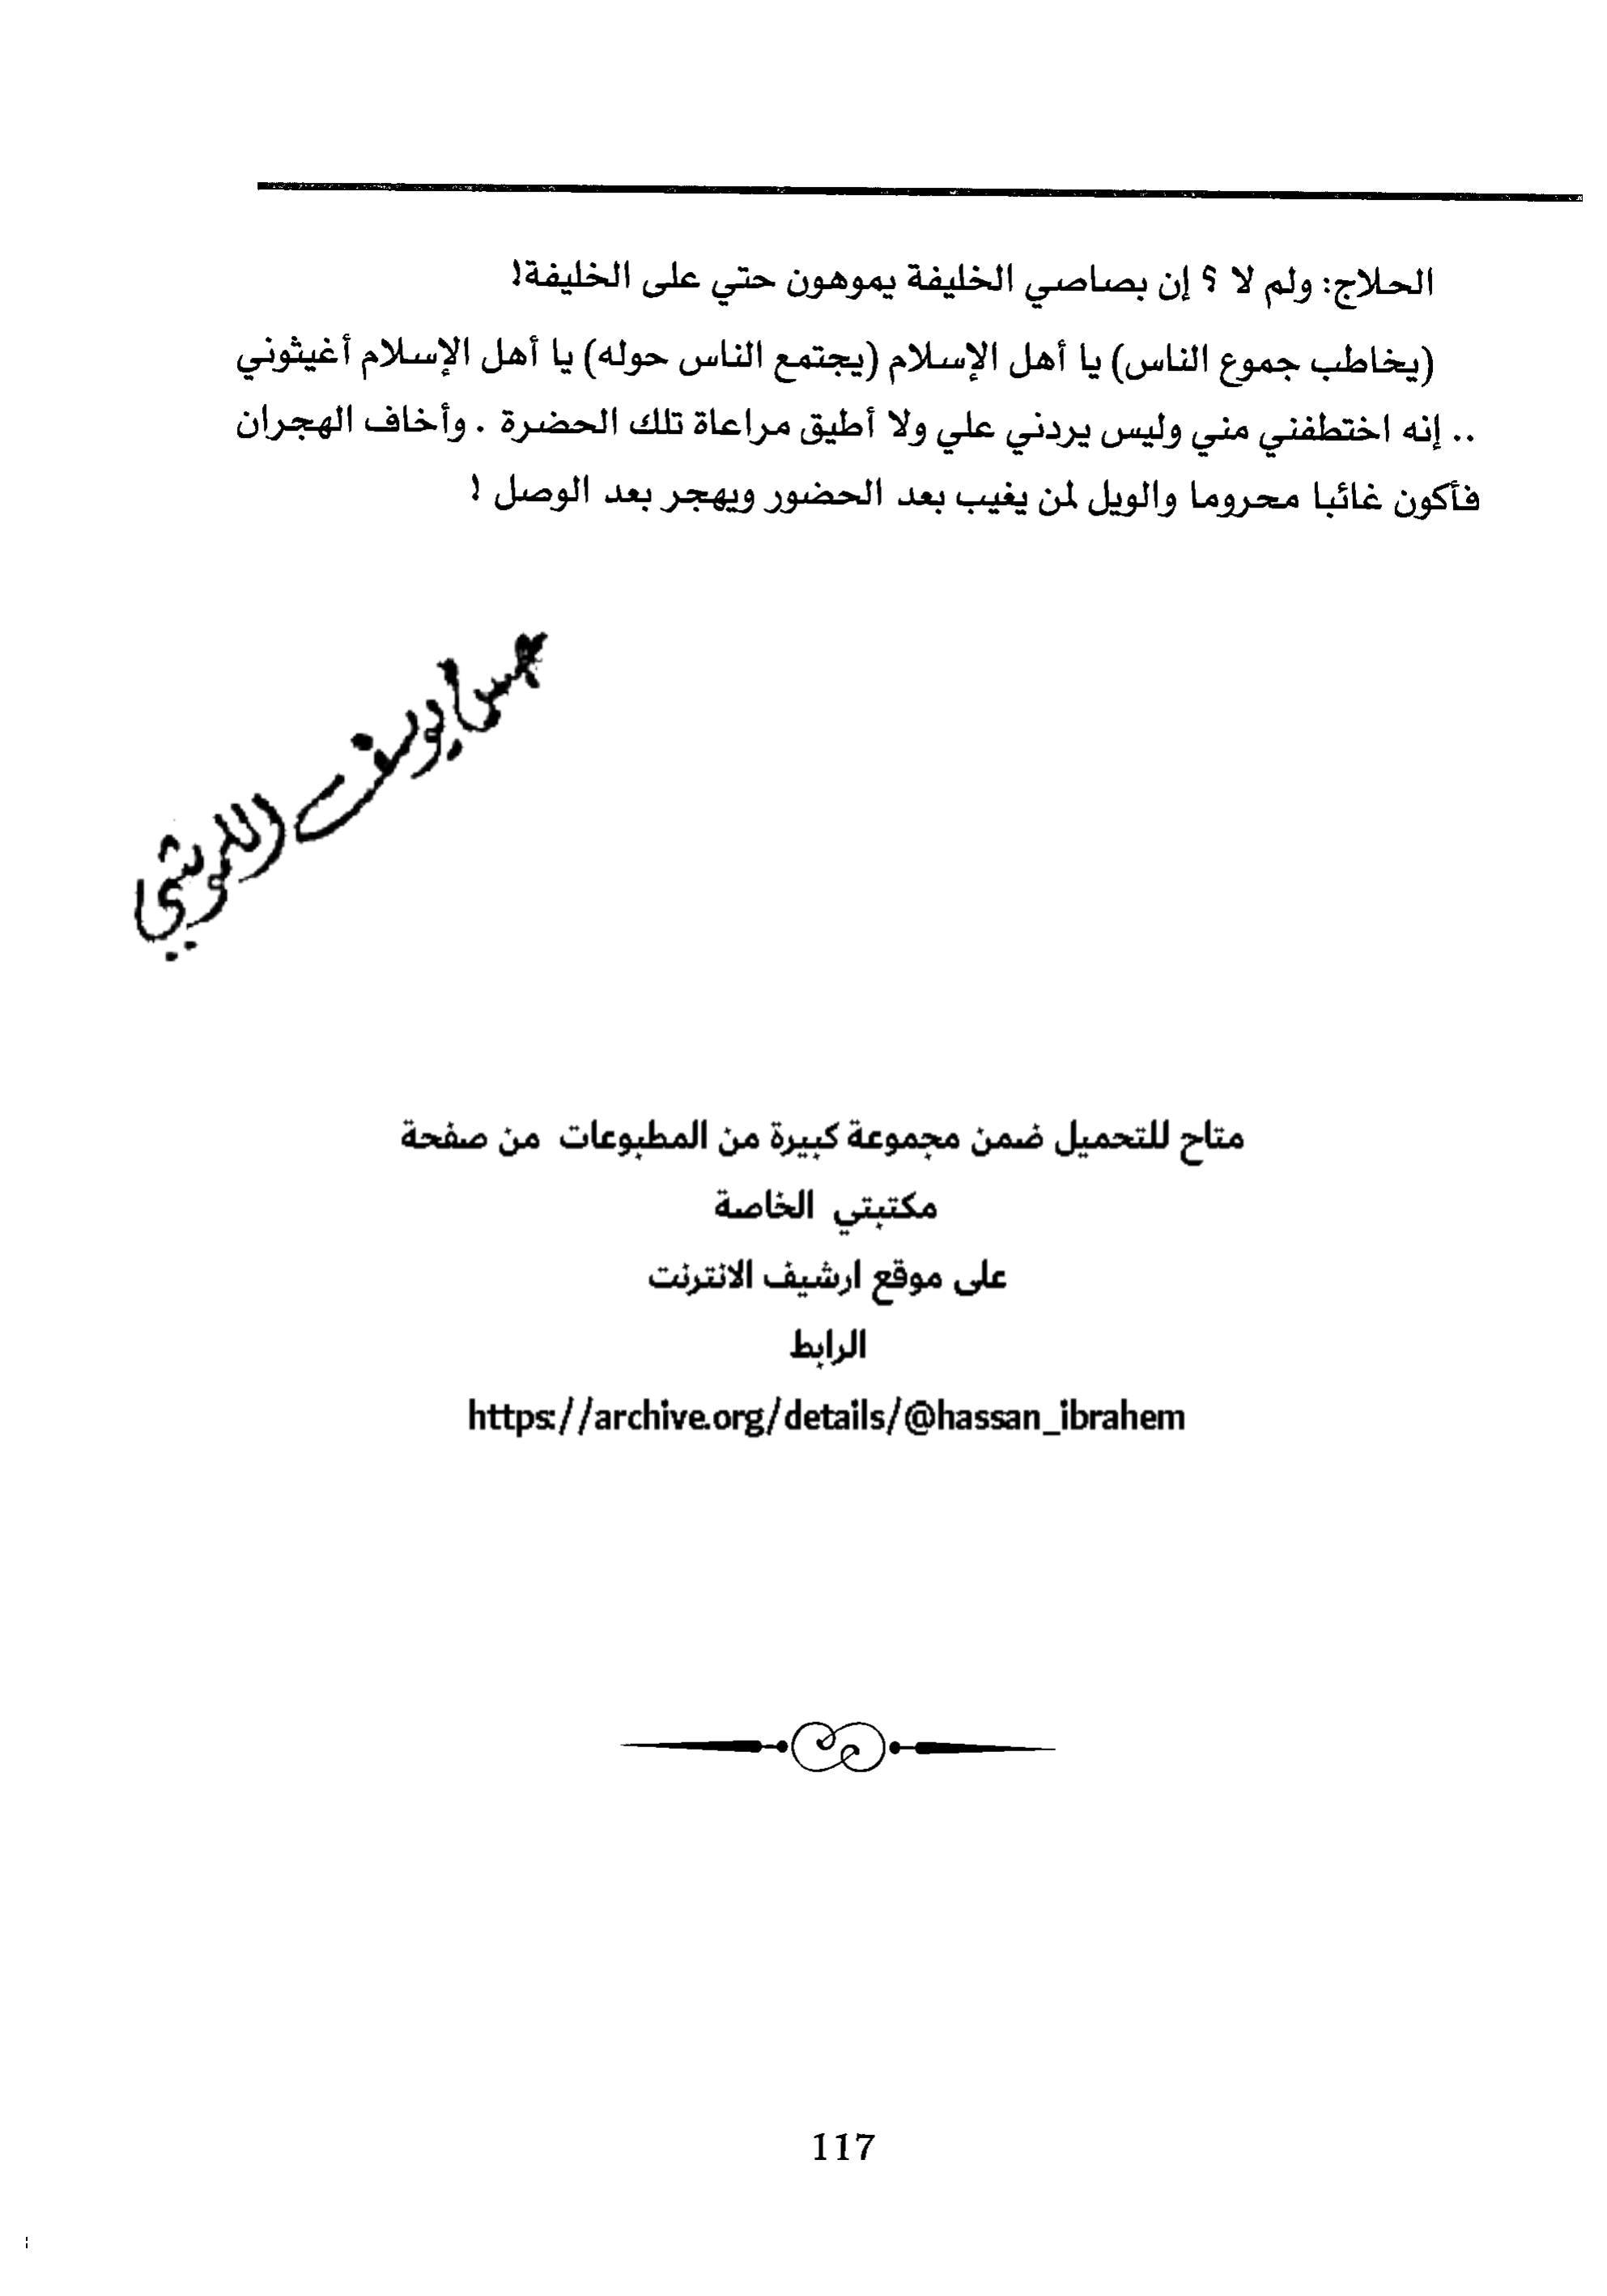 الحلاج: ولم لا ؟ إن بصاصي الخليفة يموهون حتي على الخليفة!
(يخاطب جموع الناس) يا أهل الإسلام (يجتمع الناس حوله) يا أهل الإسلام أغيثوني
.. إنه اختطفني مني وليس يردني علي ولا أطيق مراعاة تلك الحضرة . وأخاف الهجران
فأكون غائبا محروما والويل لمن يغيب بعد الحضور ويهجر بعد الوصل !
يوسف
متاح للتحميل ضمن مجموعة كبيرة من المطبوعات من صفحة
مكتبتي الخاصة
على موقع ارشيف الانترنت
الرابط
https://archive.org/details/@hassan_ibrahem
117